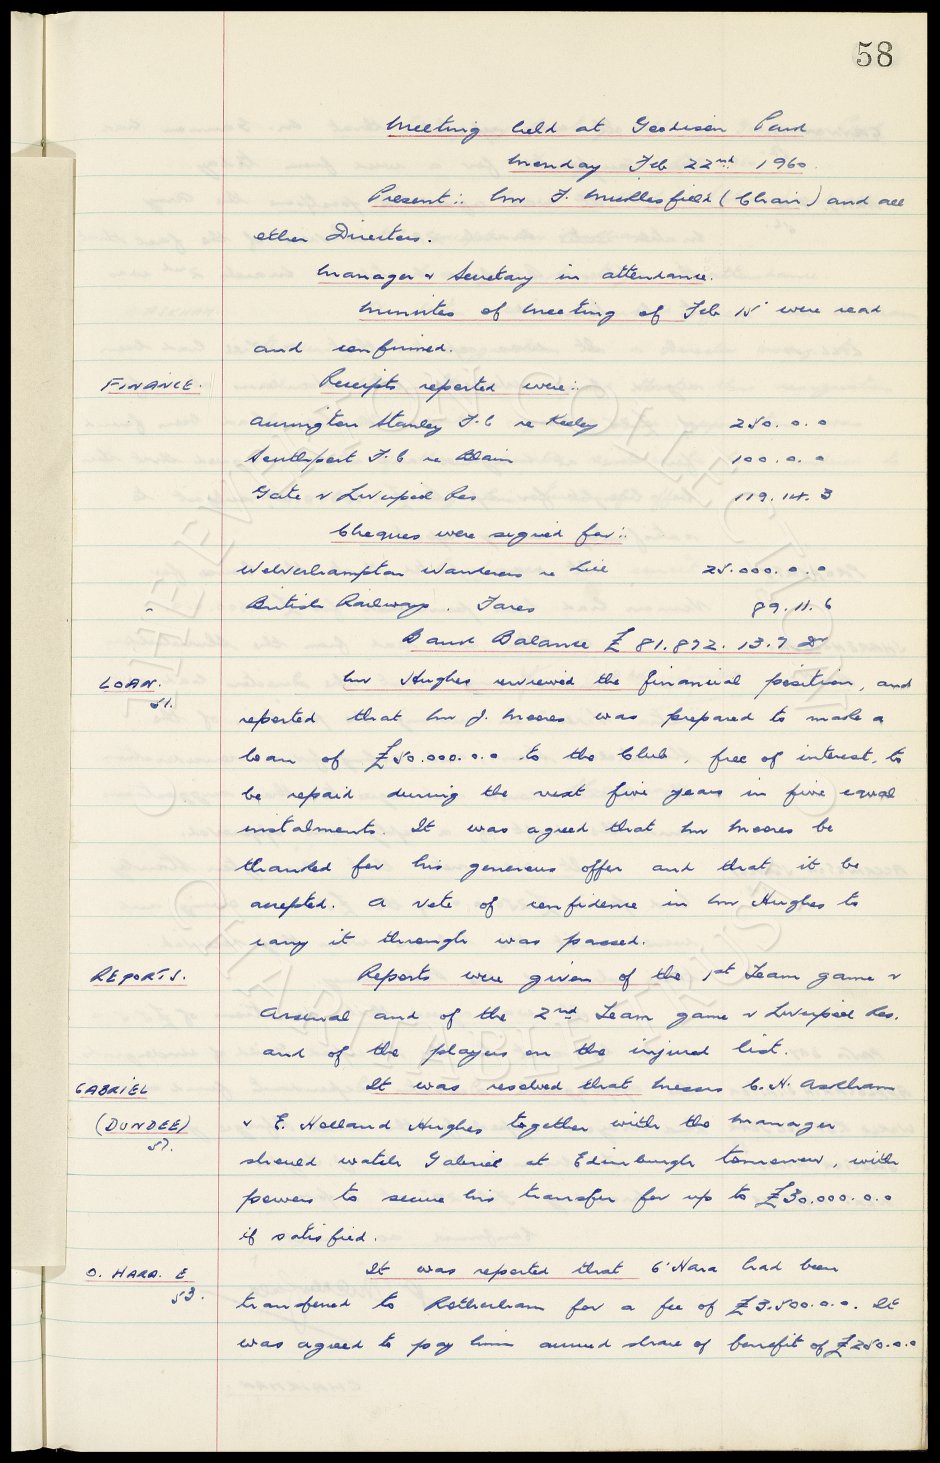 58
Meeting held at Goodison Park
Monday Feb 22nd 1960.
Present:: Mr F. Micklesfield (Chair) and all
other Directors.
Manager & Secretary in attendance.
Minutes of Meeting of Feb 15 were read
and confirmed.
FINANCE. Receipts reported were::
Accrington Stanley F.C re Keeley 250.0.0
Southport F.C re Blain 100.0.0
Gate v Liverpool Res 119.14.3
Cheques were signed for::
Wolverhampton Wanderers re Lill 25.000.0.0
British Railways. Fares 89.11.6
Bank Balance £81.892.13.7 Dr
LOAN. Mr Hughes reviewed the financial position, and
51.
reported that Mr J. Moores was prepared to make a
loan of £50.000.0.0 to the Club, free of interest, to
be repaid during the next five years in five equal
instalments. It was agreed that Mr Moores be
thanked for his generous offer and that it be
accepted. A vote of confidence in Mr Hughes to
carry it through was passed.
REPORTS. Reports were given of the 1st Team game v
Arsenal and of the 2nd Team game v Liverpool Res.
and of the players on the injured list.
GABRIEL It was resolved that Messrs C.H. Askham
(DUNDEE) & E. Holland Hughes together with the Manager
57.
should watch Gabriel at Edinburgh tomorrow, with
powers to secure his transfer for up to £30.000.0.0
if satisfied.
O. HARA. E It was reported that O'Hara had been
53.
transferred to Rotherham for a fee of £3.500.0.0. It
was agreed to pay him accrued share of benefit of £250.0.0
EVERTON COLLECTION
CHARITABLE TRUST